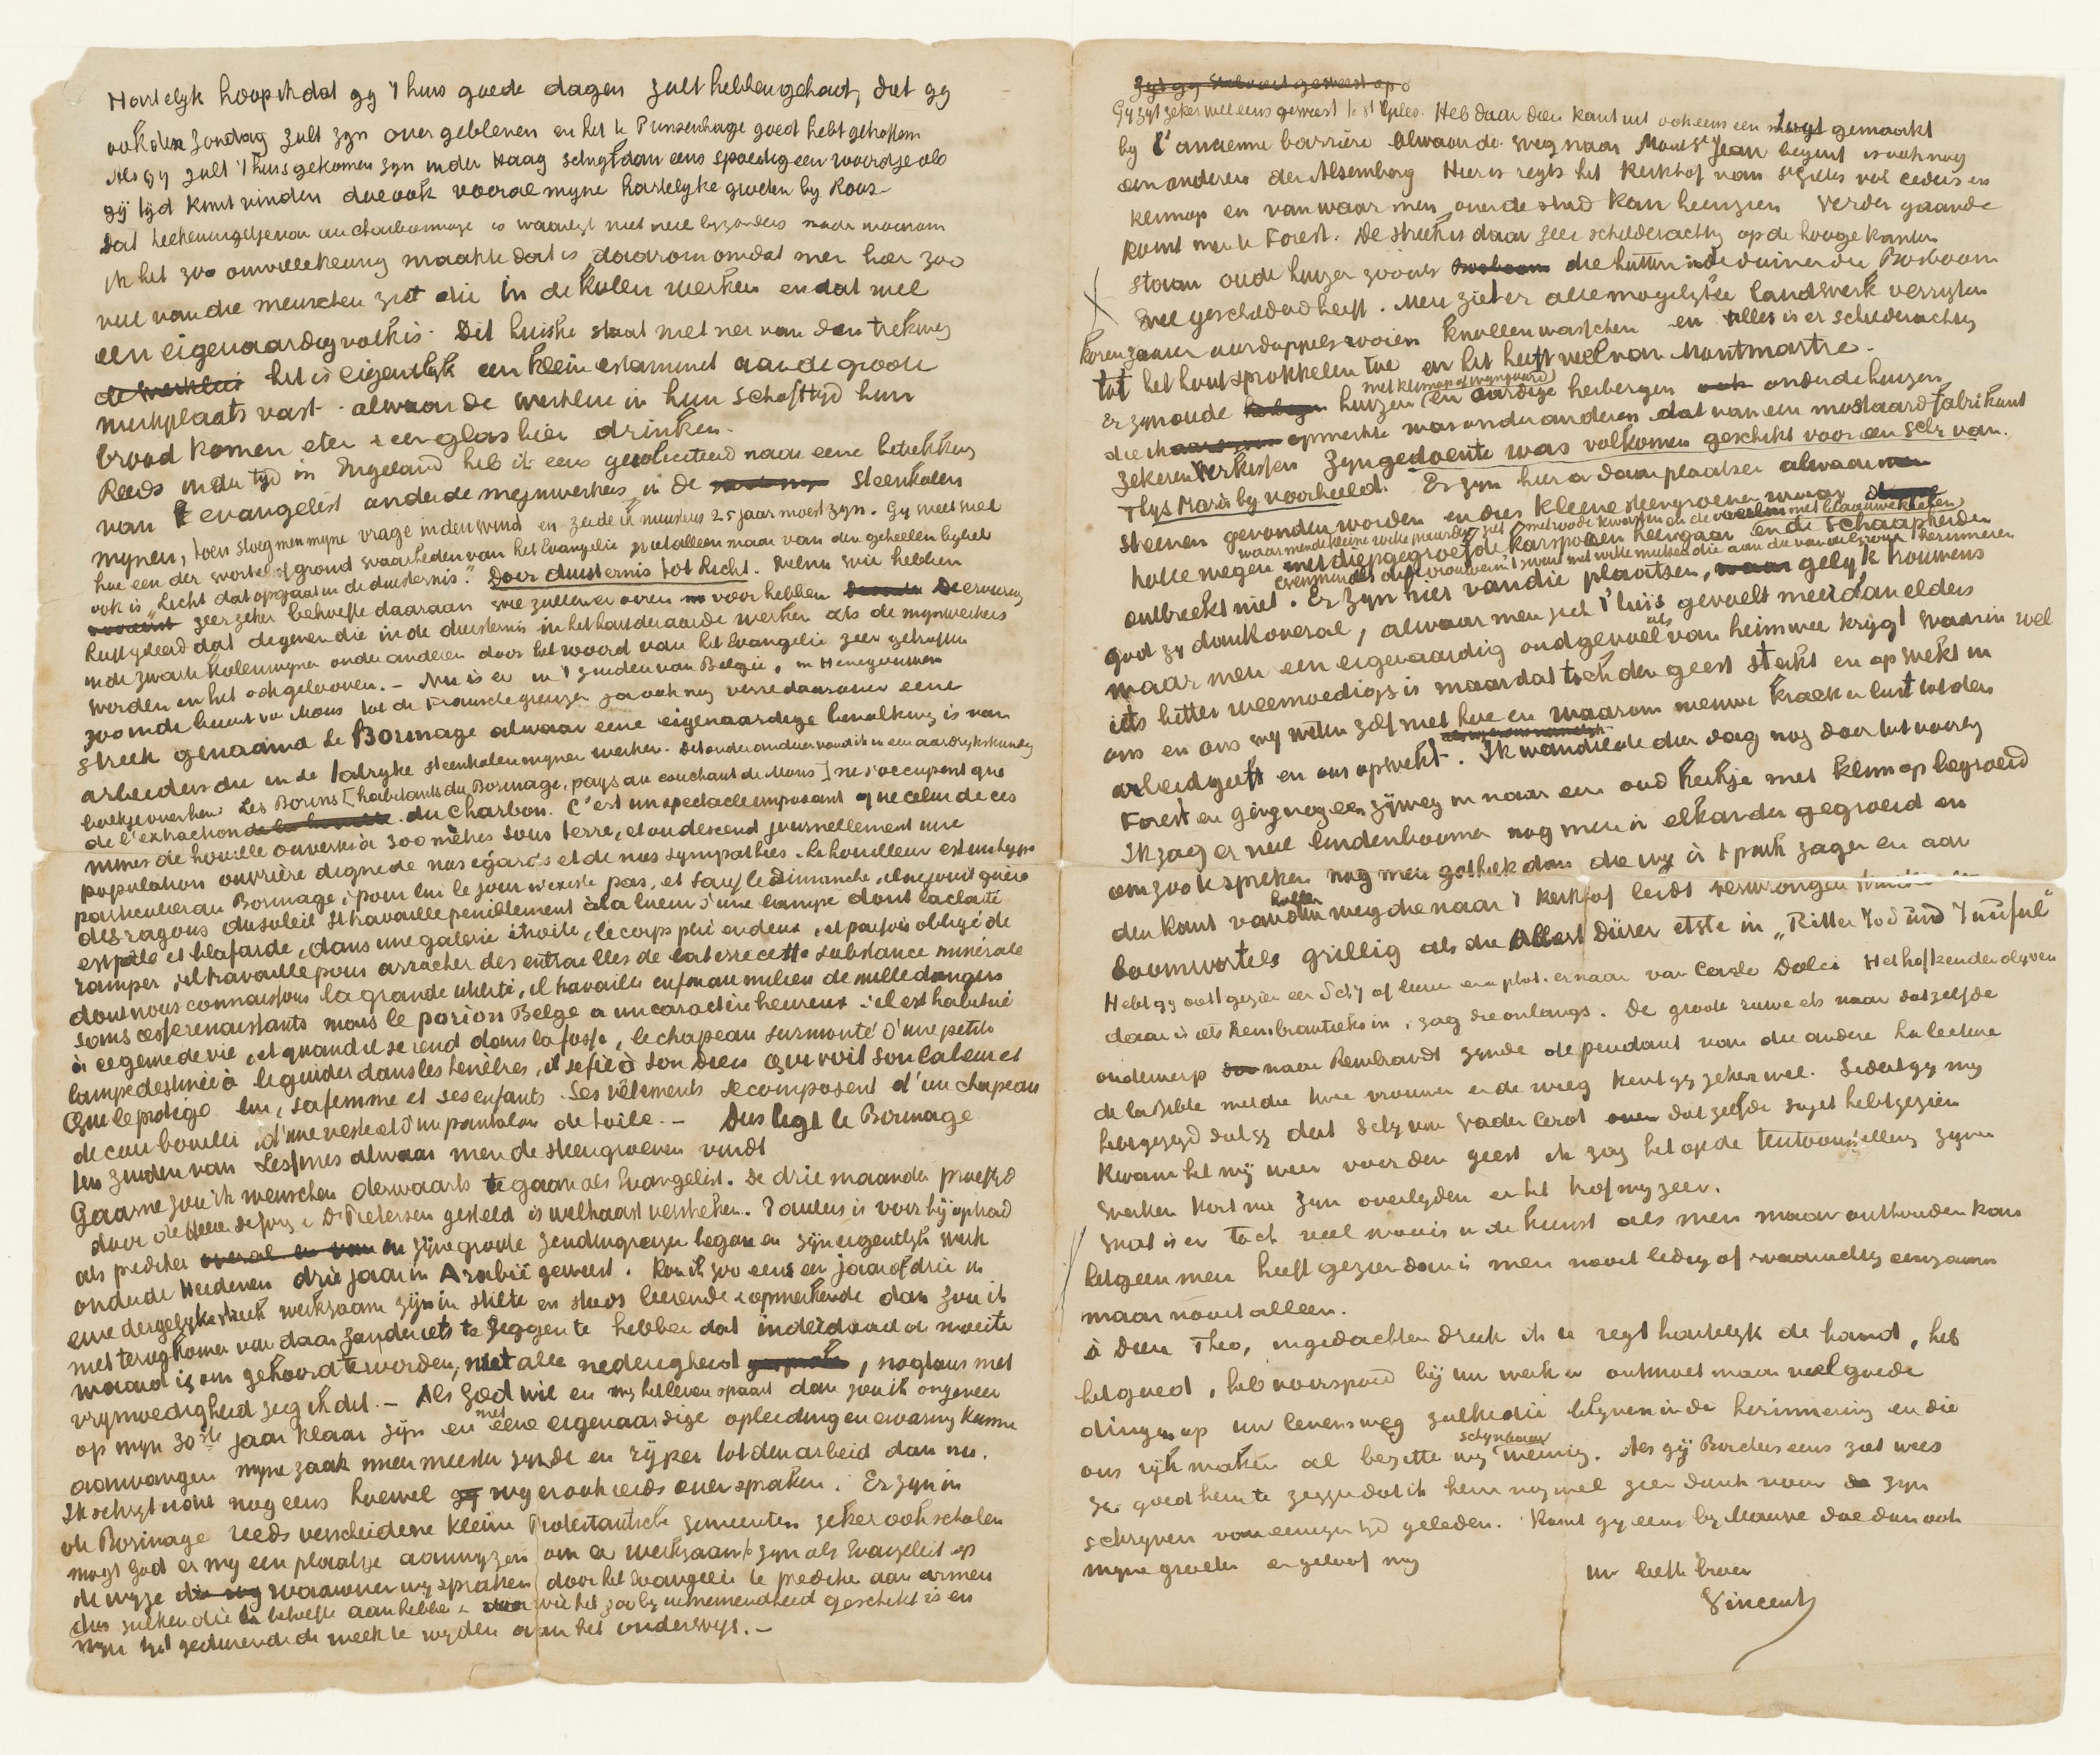 Hartelyk hoop ik dat gy 't huis goede dagen zult hebben gehad, dat gy
ook den Zondag zult zyn overgebleven en het te Prinsenhage goed hebt getroffen
Als gy zult 't huis gekomen zyn in den Haag schryf dan eens spoedig een woordje als
gij tyd kunt vinden doe ook vooral myne hartelyke groeten by Roos –
Dat teekeningetje van au charbonnage is waarlyk niet veel byzonders maar waarom
ik het zoo onwillekeurig maakte dat is daarom omdat men hier zoo
veel van die menschen ziet die in de kolen werken en dat wel
een eigenaardig volk is. Dit huiske staat niet ver van den trekweg
de werklui het is eigentlyk een klein estaminet aan de groote
werkplaats vast. alwaar de werklui in hun schafttyd hun
brood komen eten & een glas bier drinken.
Reeds in der tyd in Engeland heb ik eens gesolliciteerd naar eene betrekking
van evangelist onder de mynwerkers in de steenkolen
mynen, toen sloeg men myne vrage in den wind en zeide ik minstens 25 jaar moest zyn. Gy weet wel
hoe een der wortel of grond waarheden van het Evangelie niet alleen maar van den geheelen bybel
ook is „Licht dat opgaat in de duisternis". Door duisternis tot licht. Welnu wie hebben
zeer zeker behoefte daaraan wie zullen er ooren voor hebben De ervaring
heeft geleerd dat degenen die in de duisternis in het hart der aarde werken als de mynwerkers
in de zwarte kolenmynen onder anderen door het woord van het Evangelie zeer getroffen
worden en het ook gelooven. – Nu is er in 't zuiden van Belgie, in Henegouwen
zoo in de buurt van Mons tot de Fransche grenzen ja ook nog verre daarover eene
streek genaamd le Borinage alwaar eene eigenaardige bevolking is van
arbeiders die in de talryke steenkolenmynen werken. Dit onder anderen vond ik in een aardrykskundig
boekje over hen: Les Borins [habitants du Borinage, pays au couchant de Mons] ne s'occupent que
de l'extraction de la houille du charbon. C'est un spectacle imposant que celui de ces
mines de houille ouvertes à 300 mètres sous terre, et ou descend journellement une
population ouvrière digne de nos égards et de nos sympathies. Le houilleur est un type
particulier au Borinage; pour lui le jour n'existe pas, et sauf le Dimanche, il ne jouit guère
des rayons du soleil Il travaille péniblement à la lueur d'une lampe dont la clarté
est pâle et blafarde, dans une galerie étroite, le corps plié en deux, et parfois obligé de
ramper; il travaille pour arracher des entrailles de la terre cette substance minérale
dont nous connaissons la grande utilité, il travaille enfin au milieu de mille dangers
sans cesse renaissants mais le porion Belge a un caractère heureux: il est habitué
à ce genre de vie, et quand il se rend dans la fosse, le chapeau surmonté d'une petite
lampe destinée à le guider dans les ténèbres, il se fie à son Dieu Qui voit son labeur et
Qui le protège lui, sa femme et ses enfants. Ses vêtements se composent d'un chapeau
de cuir bouilli, d'une veste et d'un pantalon de toile. – Dus ligt le Borinage
ten zuiden van Lessines alwaar men de steengroeven vindt
Gaarne zou ik wenschen derwaarts te gaan als Evangelist. De drie maanden proeftyd
door de Heeren de Jong & Ds Pietersen gesteld is welhaast verstreken. Paulus is voor hij optrad
als prediker overal en van en zijne groote zendingreizen begon en zijn eigentlyk werk
onder de Heidenen drie jaar in Arabië geweest. Kon ik zoo eens een jaar of drie in
eene dergelyke streek werkzaam zijn in stilte en steeds leerende & opmerkende dan zou ik
niet terugkomen van daar zonder iets te zeggen te hebben dat inderdaad de moeite
waard is om gehoord te worden, met alle nederigheid, nogtans met
vrymoedigheid zeg ik dit. – Als God wil en my het leven spaart dan zou ik ongeveer
op myn 30ste jaar klaar zijn en met eene eigenaardige opleiding en ervaring kunne
aanvangen myne zaak meer meester zynde en ryper tot den arbeid dan nu.
Ik schryf u dit nog eens hoewel wy er ook reeds over spraken. Er zyn in
de Borinage reeds verscheidene kleine Protestantsche gemeenten zeker ook scholen
mogt God er my een plaatsje aanwyzen om er werkzaam te zyn als Evangelist op
de wyze die wy waarover wy spraken door het Evangelie te prediken aan armen
dus zulken die er behoefte aan hebben & voor wie het zoo by uitnemendheid geschikt is en
myn tyd gedurende de week te wyden aan het onderwys. –
Zyt gy wel ooit geweest op
Gy zyt zeker wel eens geweest te St Gilles. Heb daar dien kant uit ook eens een togt gemaakt
by l'ancienne barrière Alwaar de weg naar Mont St Jean begint is ook nog
een anderen den Alsemberg Hier is regts het Kerkhof van St Gilles vol ceders en
klimop en van waar men over de stad kan heenzien Verder gaande
komt men te Forest. De streek is daar zeer schilderachtig op de hooge kanten
staan oude huizen zooals die hutten in de duinen die Bosboom
wel geschilderd heeft. Men ziet er alle mogelyke landswerk verrigten
koren zaaien aardappels rooien knollen wasschen en alles is er schilderachtig
tot het hout sprokkelen toe en het heeft veel van Montmartre.
Er zyn oude huizen met klimop of wyngaard en aardige herbergen onder de huizen
die ik opmerkte was onder anderen dat van een mostaardfabrikant
zekeren Verkissen Zyn gedoente was volkomen geschikt voor een schr van
Thys Maris by voorbeeld. Er zyn hier & daar plaatsen alwaar
steenen gevonden worden en dus kleene steengroeven waar
holle wegen met diepgegroefde karsporen heengaan
waar men de kleine witte paardjes ziet met roode kwasten en de voerlui met blaauwe kielen
en de schaapherder
ontbreekt niet. Evenmin als oude vrouwen in 't zwart met witte mutsen die aan die van de Groux herinneren
Er zyn hier van die plaatsen, gelyk trouwens
God zy dank overal, alwaar men zich t'huis gevoelt meer dan elders
waar men een eigenaardig oud gevoel als van heimwee krygt waarin wel
iets bitter weemoedigs is maar dat toch den geest sterkt en opwekt in
ons en ons wy weten zelf niet hoe en waarom nieuwe kracht en lust tot den
arbeid geeft en ons opwekt. Ik wandelde dien dag nog door tot voorby
Forest en ging nog een zijweg in naar een oud kerkje met klimop begroeid
Ik zag er veel lindenboomen nog meer in elkander gegroeid en
om zoo te spreken nog meer gothiek dan die wy in 't park zagen en aan
den kant van den hollen weg die naar 't kerkhof leidt verwrongen
boomwortels grillig als die Albert Dürer etste in „Ritter Tod und Teufel"
Hebt gy ooit gezien een Schy of liever een phot. er naar van Carlo Dolci Het hofken der olyven
daar is iets Rembrandtieks in, zag die onlangs. De groote ruwe ets naar datzelfde
onderwerp naar Rembrandt zynde de pendant van die andere la lecture
de la Bible met die twee vrouwen en de wieg kent gy zeker wel. Sedert gy my
hebt gezegd dat gy dat Schy van Vader Corot over datzelfde sujet hebt gezien
kwam het my weer voor den geest ik zag het op de tentoonstelling zyner
werken kort na zyn overlyden en het trof my zeer.
Wat is er toch veel moois in de kunst als men maar onthouden kan
hetgeen men heeft gezien dan is men nooit ledig of waarachtig eenzaam
maar nooit alleen.
à Dieu Theo, in gedachten druk ik u regt hartelyk de hand, heb
het goed, heb voorspoed bij uw werk & ontmoet maar veel goede
dingen op uw levensweg zulke die blyven in de herinnering en die
ons ryk maken al bezitten wy schynbaar weinig. Als gij Borchers eens ziet wees
zoo goed hem te zeggen dat ik hem nog wel zeer dank voor zyn
schryven van eenigen tyd geleden. Komt gy eens by Mauve doe dan ook
myne groeten en geloof my
uw liefh. broer
Vincent